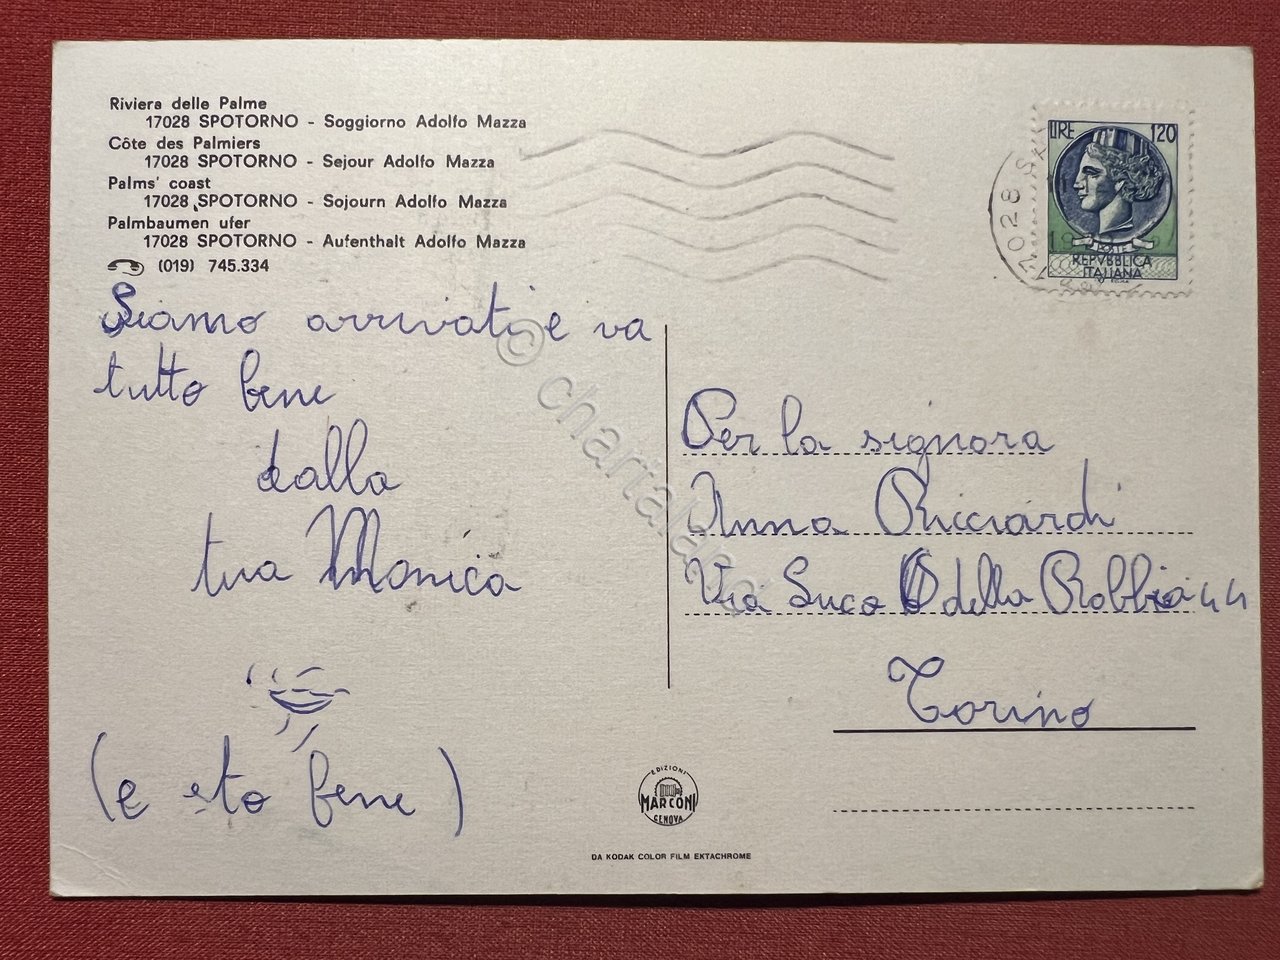 Riviera delle Palme
17028 SPOTORNO - Soggiorno Adolfo Mazza
Côte des Palmiers
17028 SPOTORNO - Sejour Adolfo Mazza
Palms' coast
17028 SPOTORNO - Sojourn Adolfo Mazza
Palmbaumen ufer
17028 SPOTORNO - Aufenthalt Adolfo Mazza
(019) 745.334
Siamo arrivati e va
tutto bene
dalla
tua Monica
(e sto bene)
LIRE 120
POSTE
REPVBBLICA
ITALIANA
17028 S
Per la signora
Anna Ricciardi
Via Luca della Robbia 44
Torino
EDIZIONI
MARCONI
GENOVA
DA KODAK COLOR FILM EKTACHROME
© chartaland